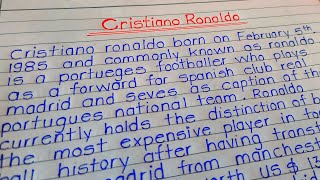 Cristiano Ronaldo
Cristiano ronaldo born on February 5th
1985 and commonly known as ronaldo
is a portueges footballer who plays
as a forward for spanish club real
madrid and seves as caption of th
portugues national team. Ronaldo
currently holds the distinction of b
the most expensive player in foo
ball history after having transf
madrid from manchest
orth US $ 13